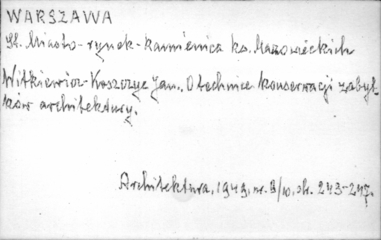 WARSZAWA
St. Miasto-rynek-kamienica ks. Mazowieckich
Witkiewicz-Koszczyc Jan. O technice konserwacji zabyt-
ków architektury.
Architektura, 1949, nr. 8/10, str. 243-247.